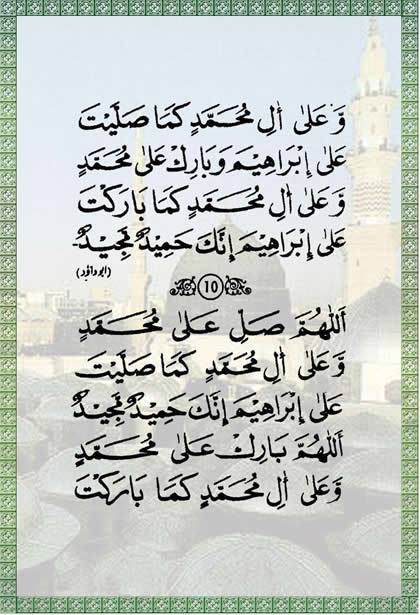 وَّعَلٰى اٰلِ مُحَمَّدٍ كَمَا صَلَّيْتَ
عَلٰى اِبْرَاهِيْمَ وَبَارِكْ عَلٰى مُحَمَّدٍ
وَّعَلٰى اٰلِ مُحَمَّدٍ كَمَا بَارَكْتَ
عَلٰى اِبْرَاهِيْمَ اِنَّكَ حَمِيْدٌ مَّجِيْدٌ۔
(ابوداؤد)
١٥
اَللّٰهُمَّ صَلِّ عَلٰى مُحَمَّدٍ
وَّعَلٰى اٰلِ مُحَمَّدٍ كَمَا صَلَّيْتَ
عَلٰى اِبْرَاهِيْمَ اِنَّكَ حَمِيْدٌ مَّجِيْدٌ
اَللّٰهُمَّ بَارِكْ عَلٰى مُحَمَّدٍ
وَّعَلٰى اٰلِ مُحَمَّدٍ كَمَا بَارَكْتَ